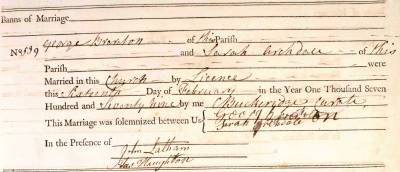 Banns of Marriage
No 539 George Branton of this Parish
and Sarah Archdale of this
Parish were
Married in this Church by Licence
this Sixteenth Day of February in the Year One Thousand Seven
Hundred and Seventy Nine by me C Buckeridge Curate
This Marriage was solemnized between Us
Sarah Archdale
In the Presence of John Latham
Haughton